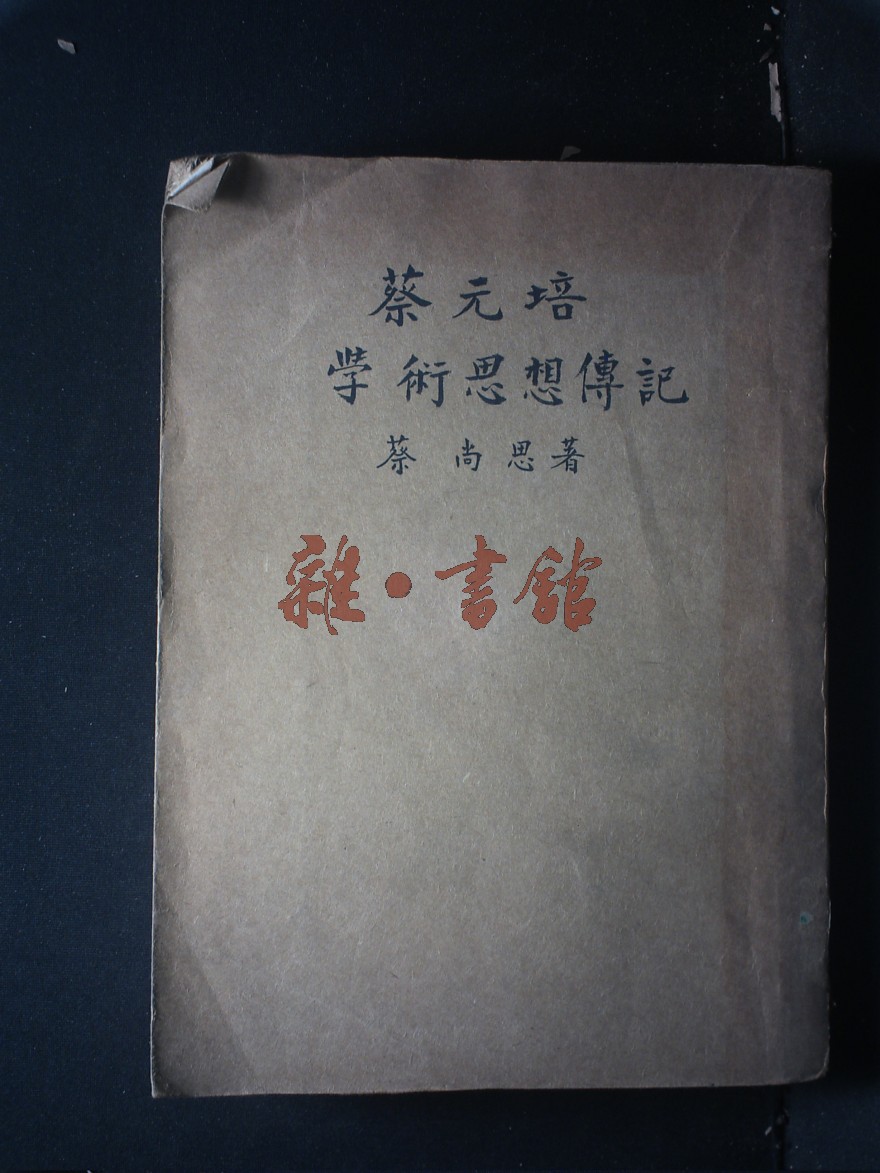 蔡元培
學術思想傳記
蔡尚思著
雜·書館